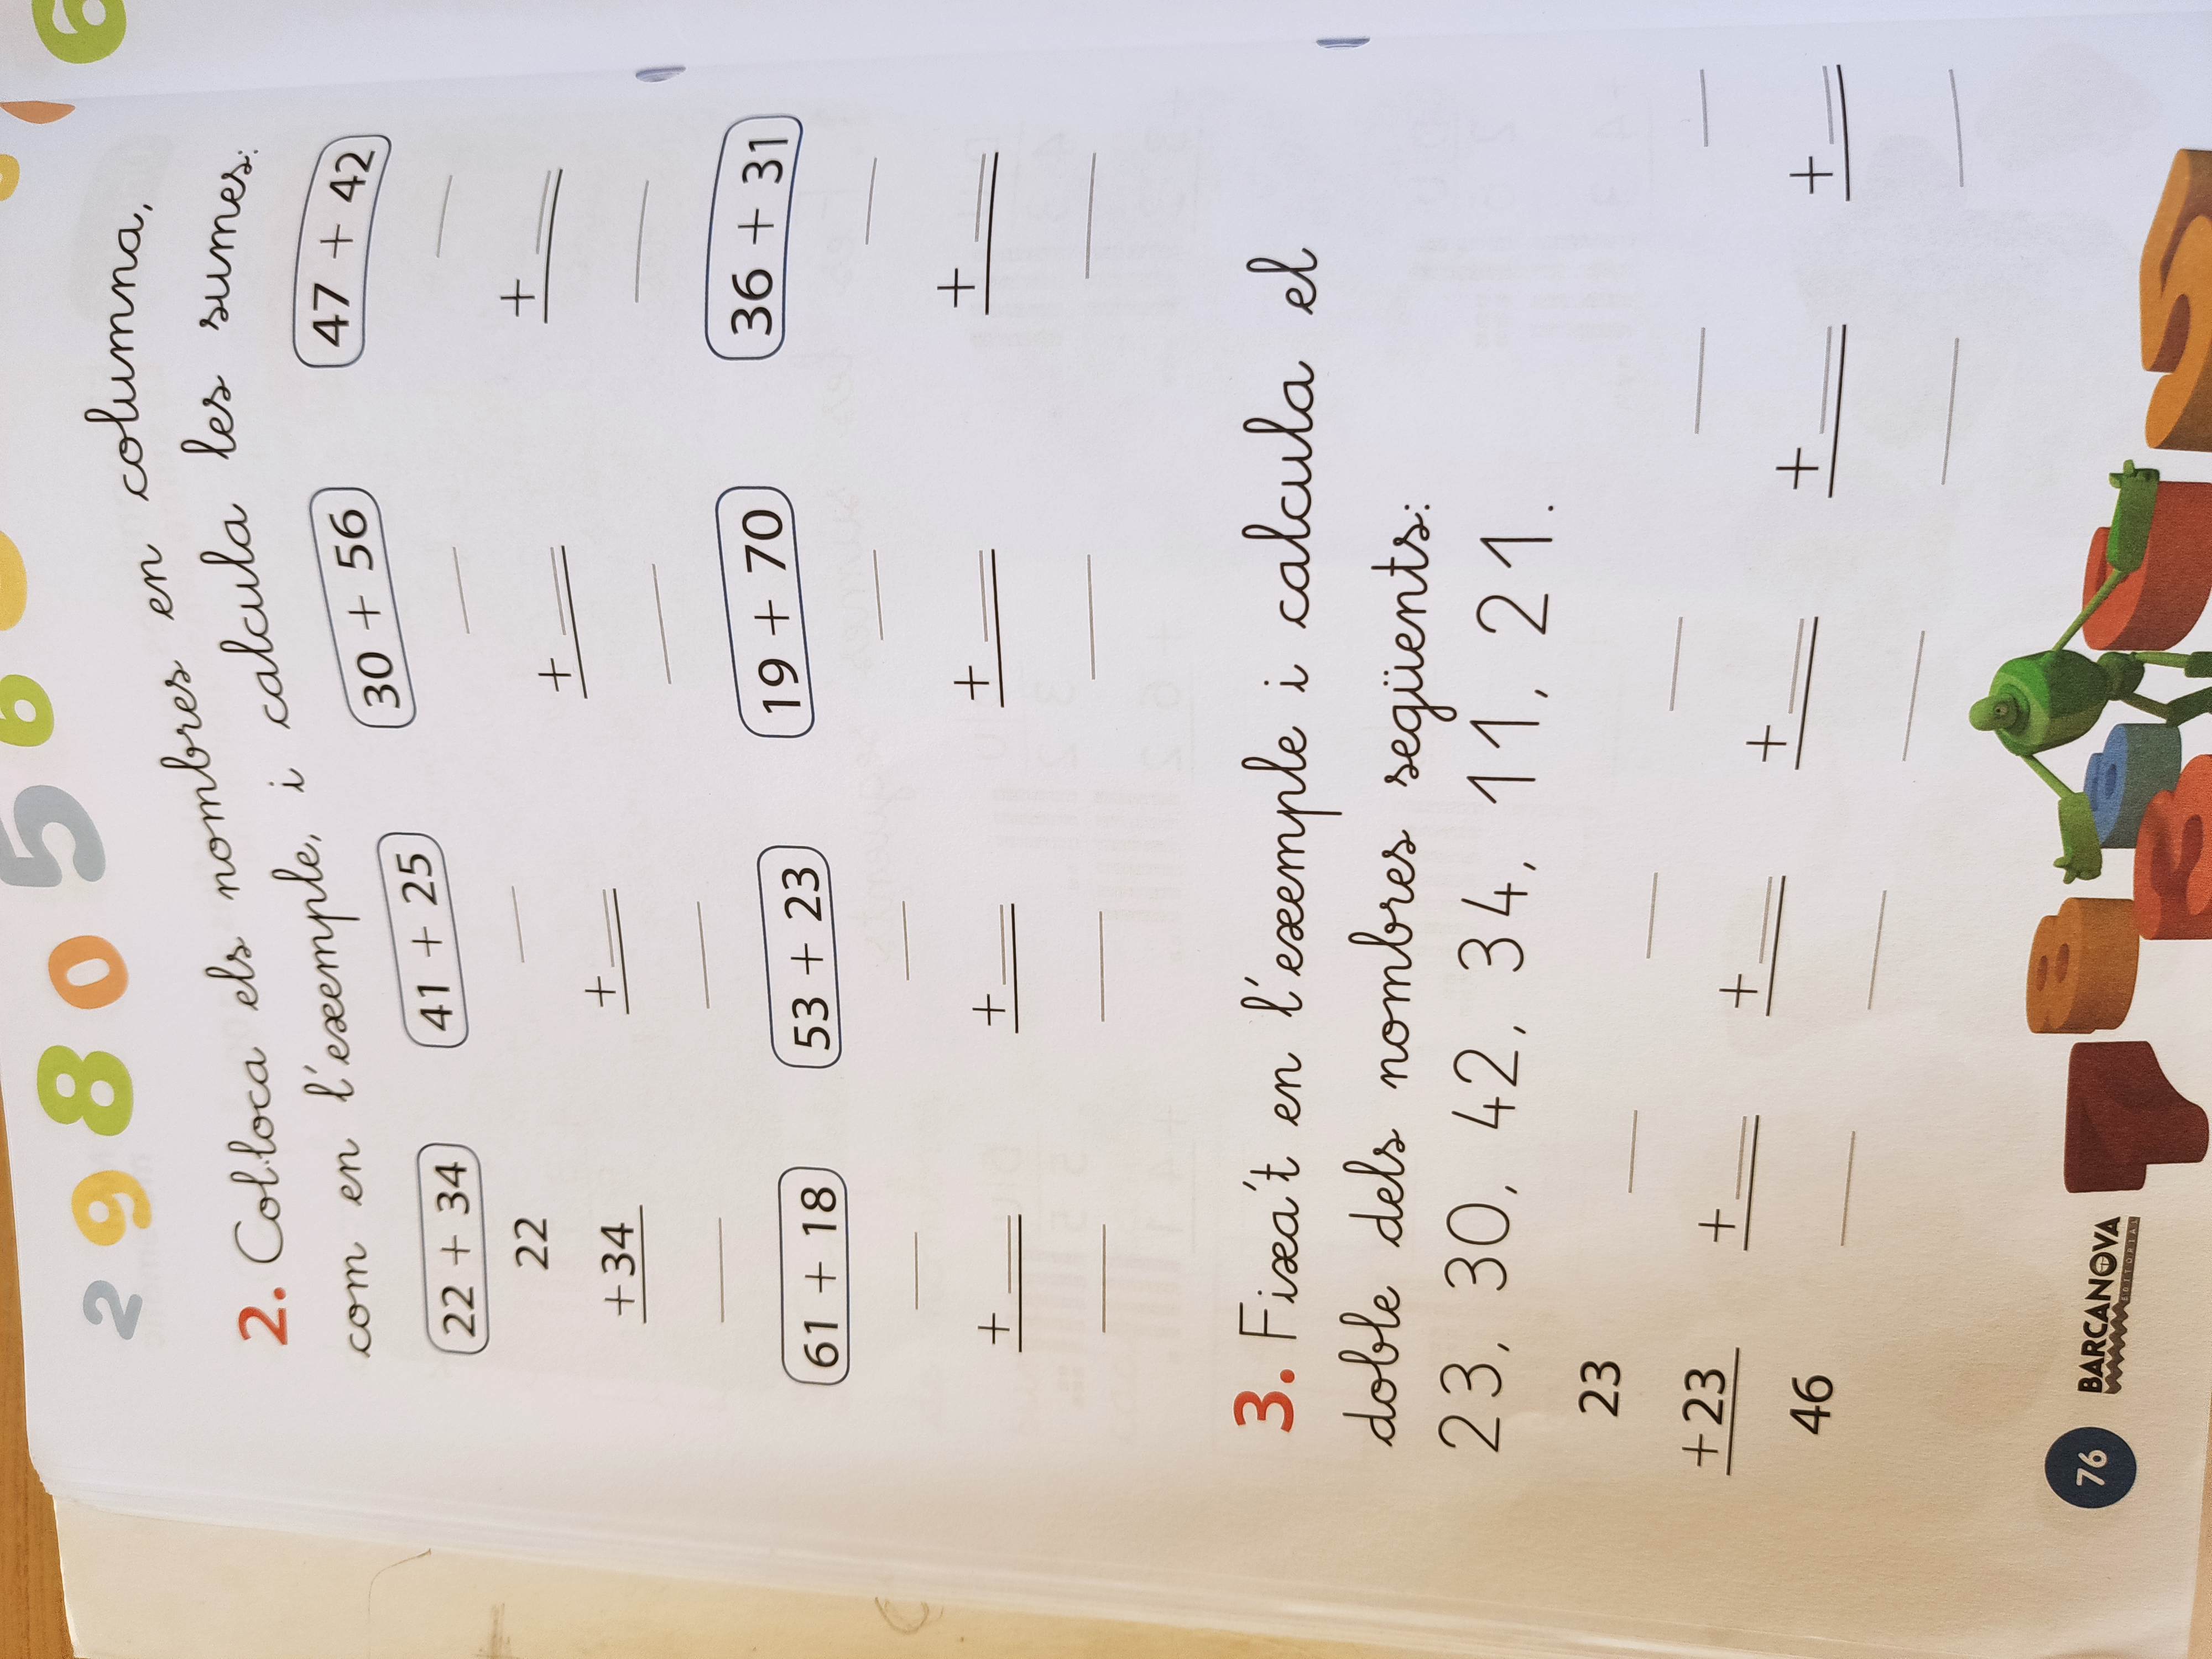 2 9 8 0 5 6
2. Col·loca els nombres en columna,
com en l'exemple, i calcula les sumes:
22 + 34 41 + 25 30 + 56 47 + 42
22
+34 + + +
61 + 18 53 + 23 19 + 70 36 + 31
+ + + +
3. Fixa't en l'exemple i calcula el
doble dels nombres següents:
23, 30, 42, 34, 11, 21.
23
+23 + + + + +
46
76 BARCANOVA
EDITORIAL